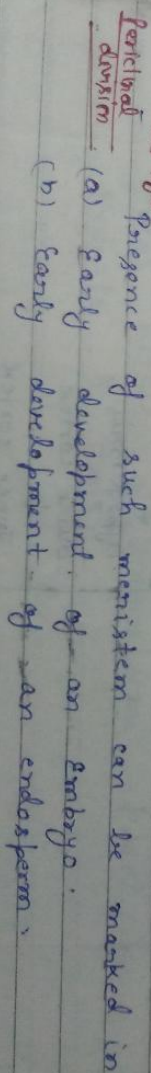 Periclinal
division
Presence of such meristem can be marked in
(a) Early development of an Embryo.
(b) Early development of an endosperm.